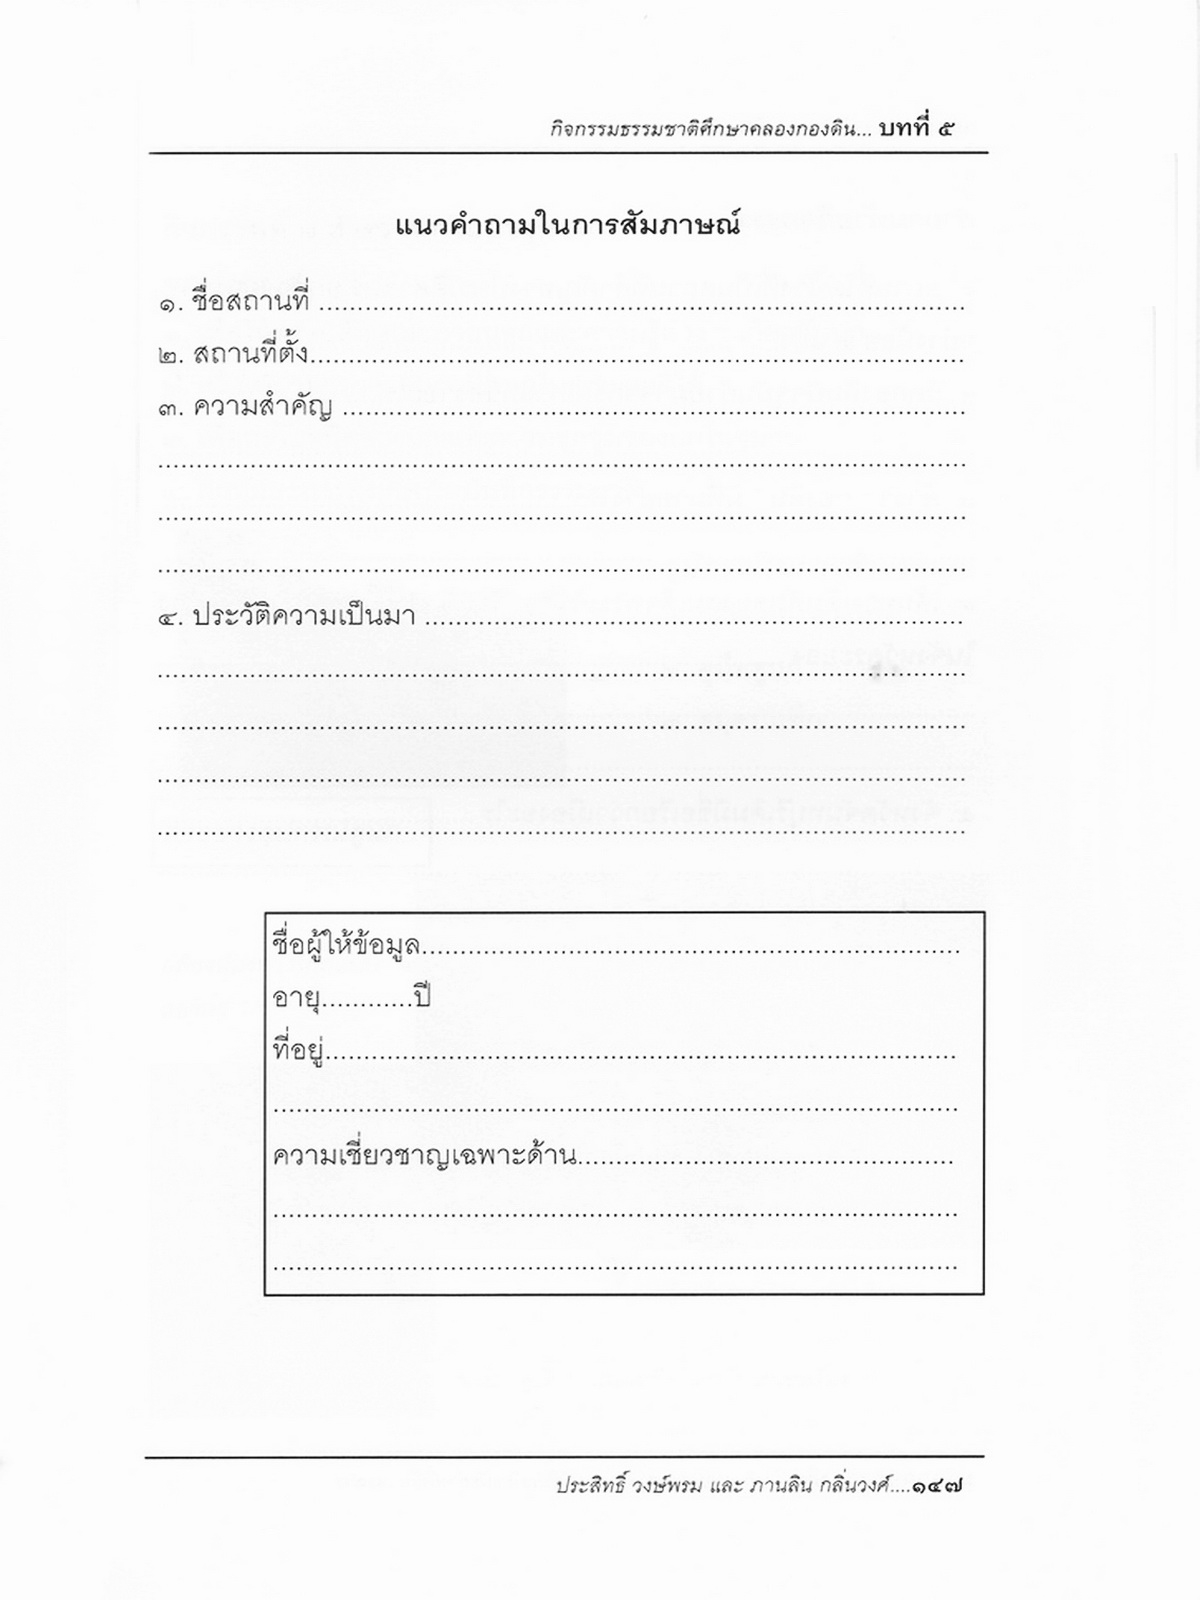 กิจกรรมธรรมชาติศึกษาคลองกองดิน... บทที่ ๕
แนวคำถามในการสัมภาษณ์
๑. ชื่อสถานที่ ................................................................................
๒. สถานที่ตั้ง................................................................................
๓. ความสำคัญ ................................................................................
................................................................................
................................................................................
................................................................................
๔. ประวัติความเป็นมา ................................................................................
................................................................................
................................................................................
................................................................................
................................................................................
ชื่อผู้ให้ข้อมูล......................................................................
อายุ............ปี
ที่อยู่................................................................................
................................................................................
ความเชี่ยวชาญเฉพาะด้าน.................................................
................................................................................
................................................................................
ประสิทธิ์ วงษ์พรม และ ภานลิน กลิ่นวงศ์....๑๔๗